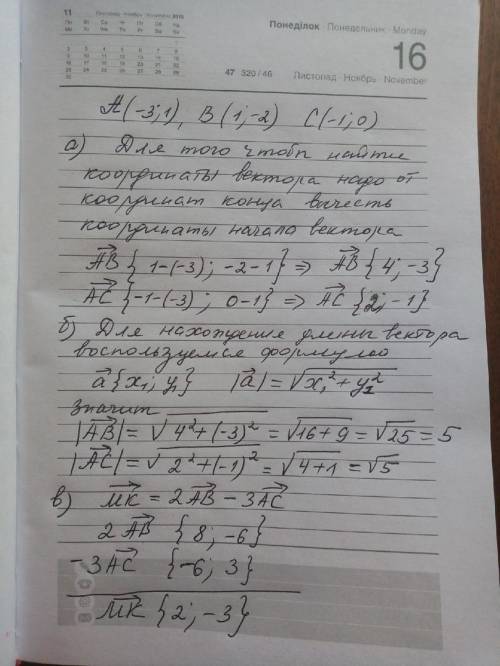 11 Листопад · Ноябрь · November 2015
Понеділок · Понедельник · Monday
16
47 320 / 46 Листопад · Ноябрь · November
A(-3;1), B(1;-2) C(-1;0)
а) Для того чтобы найти
координаты вектора надо от
координат конца вычесть
координаты начала вектора
AB⃗ {1-(-3); -2-1} ⇒ AB⃗ {4; -3}
AC⃗ {-1-(-3); 0-1} ⇒ AC⃗ {2; -1}
б) Для нахождение длены вектора
воспользуемся формулой
a⃗ {x₁; y₁} |a⃗| = √x₁²+y₁²
значит
|AB⃗| = √4²+(-3)² = √16+9 = √25 = 5
|AC⃗| = √2²+(-1)² = √4+1 = √5
в) MK⃗ = 2AB⃗ - 3AC⃗
2AB⃗ {8; -6}
-3AC⃗ {-6; 3}
MK⃗ {2; -3}